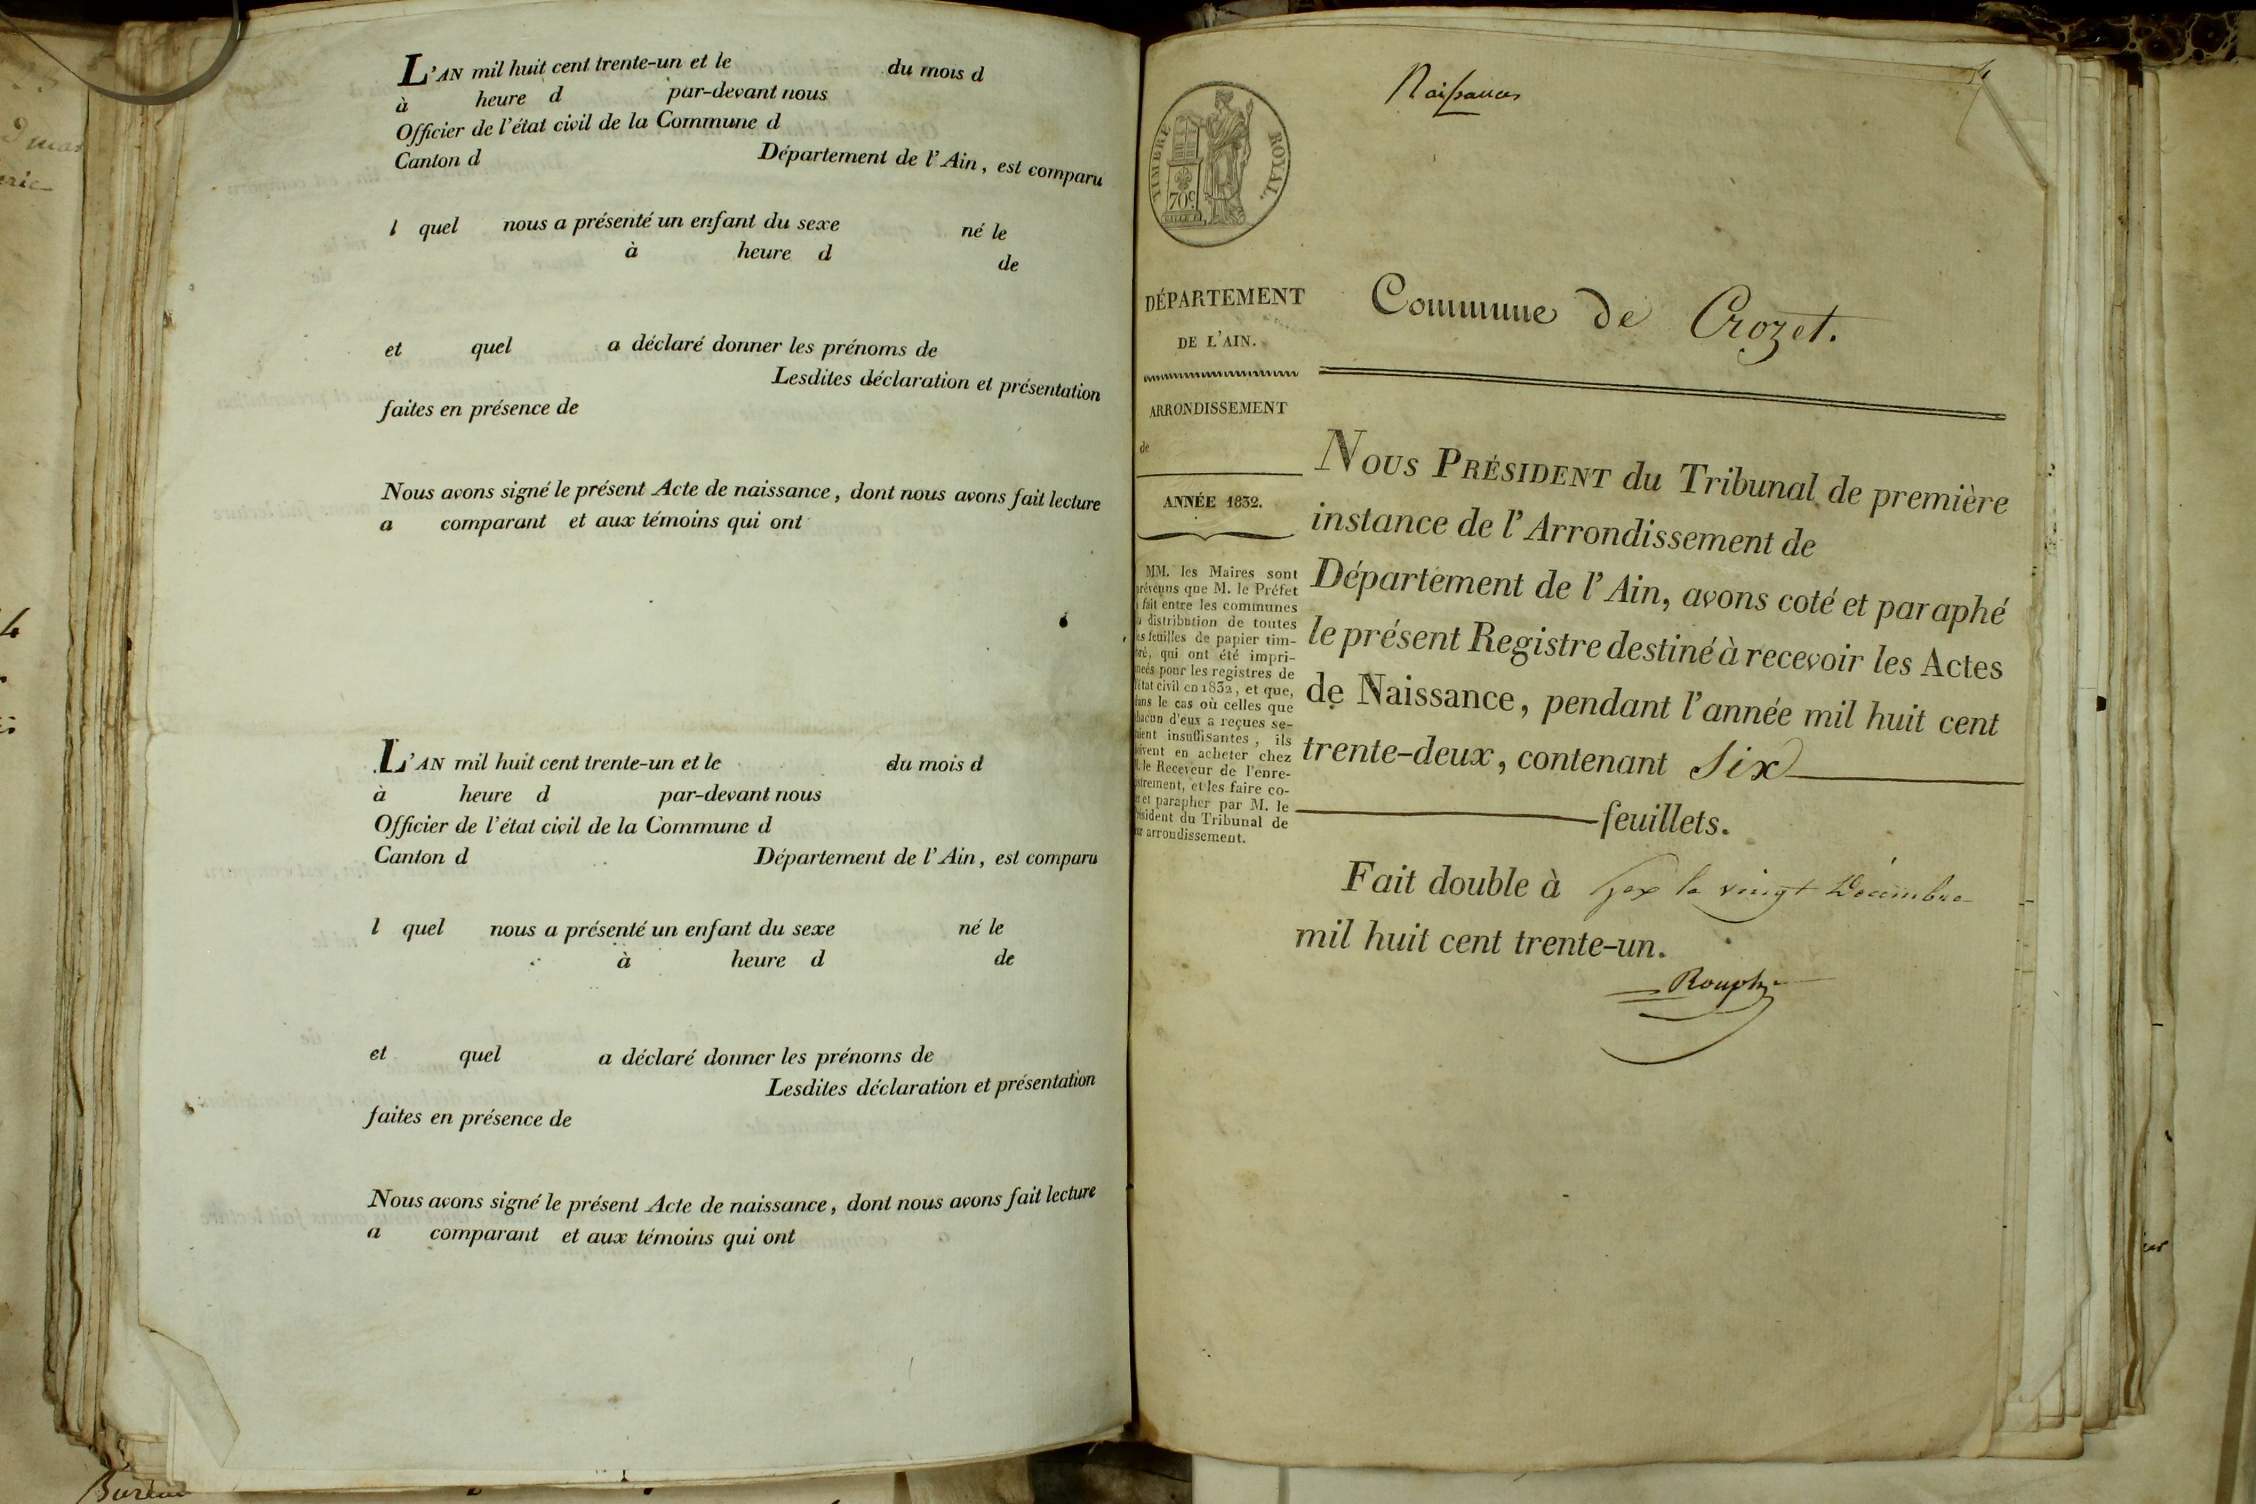 L'AN mil huit cent trente-un et le du mois d
à heure d par-devant nous
Officier de l'état civil de la Commune d
Canton d Département de l'Ain, est comparu
l quel nous a présenté un enfant du sexe né le
à heure d de
et quel a déclaré donner les prénoms de
Lesdites déclaration et présentation
faites en présence de
Nous avons signé le présent Acte de naissance, dont nous avons fait lecture
a comparant et aux témoins qui ont
L'AN mil huit cent trente-un et le du mois d
à heure d par-devant nous
Officier de l'état civil de la Commune d
Canton d Département de l'Ain, est comparu
l quel nous a présenté un enfant du sexe né le
à heure d de
et quel a déclaré donner les prénoms de
Lesdites déclaration et présentation
faites en présence de
Nous avons signé le présent Acte de naissance, dont nous avons fait lecture
a comparant et aux témoins qui ont
Naissances
TIMBRE ROYAL.
70c
DÉPARTEMENT
DE L'AIN.
ARRONDISSEMENT
de
ANNÉE 1832.
MM. les Maires sont
prévenus que M. le Préfet
a fait entre les communes
la distribution de toutes
les feuilles de papier tim-
bré, qui ont été impri-
mées pour les registres de
l'état civil en 1832, et que,
dans le cas où celles que
chacun d'eux a reçues se-
raient insuffisantes, ils
doivent en acheter chez
M. le Receveur de l'enre-
gistrement, et les faire co-
ter et parapher par M. le
Président du Tribunal de
leur arrondissement.
Commune de Crozet.
NOUS PRÉSIDENT du Tribunal de première
instance de l'Arrondissement de
Département de l'Ain, avons coté et paraphé
le présent Registre destiné à recevoir les Actes
de Naissance, pendant l'année mil huit cent
trente-deux, contenant Six
feuillets.
Fait double à Gex le vingt Décembre
mil huit cent trente-un.
Rouph
Bureau